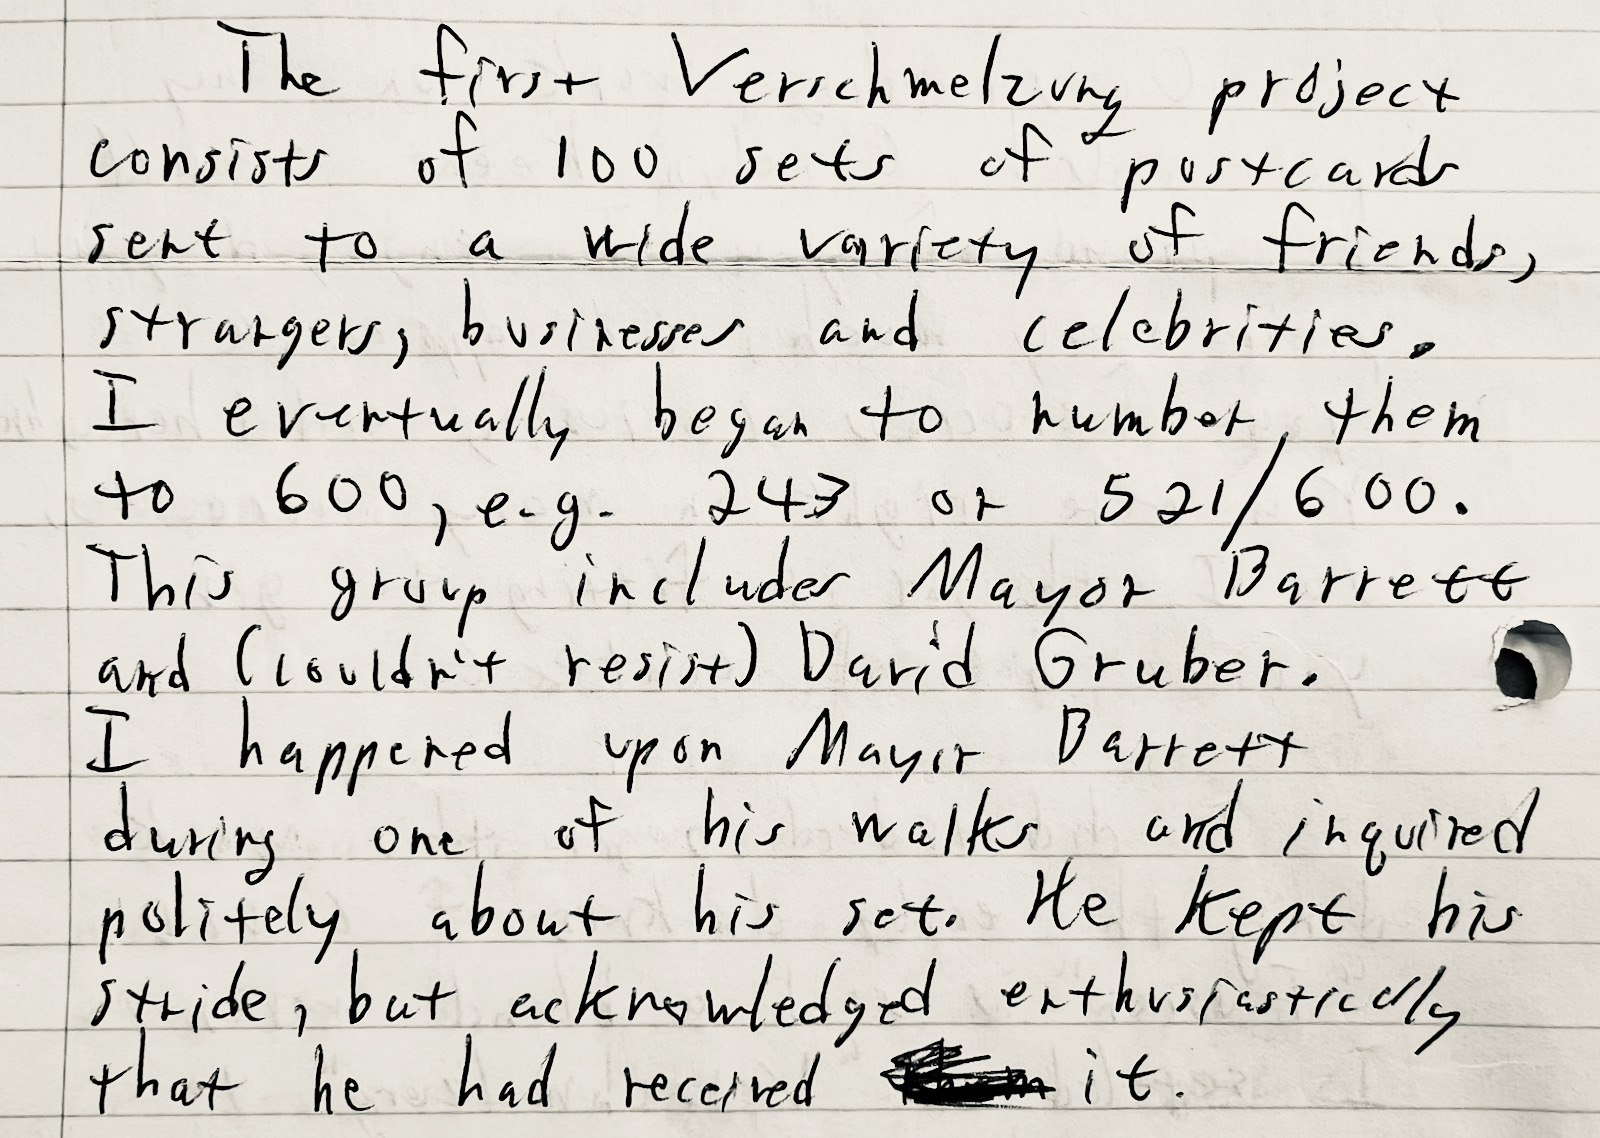 The first Verschmelzung project
consists of 100 sets of postcards
sent to a wide variety of friends,
strangers, businesses and celebrities.
I eventually began to number them
to 600, e.g. 243 or 521/600.
This group includes Mayor Barrett
and (couldn't resist) David Gruber.
I happened upon Mayor Barrett
during one of his walks and inquired
politely about his set. He kept his
stride, but acknowledged enthusiastically
that he had received it.